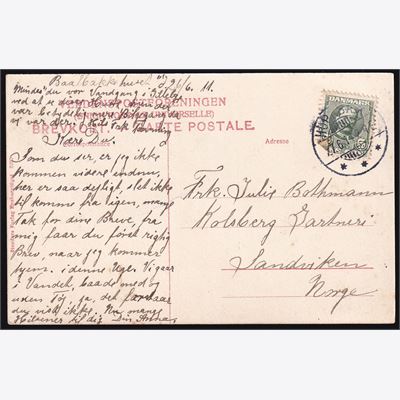 Baathakkehuset 21/6. 11.
Mindes du vor Vandgang i
ved at
var betydelig
var der. Hils Frk.
VERDENSPOSTFORENINGEN
(UNION POSTALE UNIVERSELLE)
BREVKORT. CARTE POSTALE.
Adresse
DANMARK
Kære Du.
Som du ser, er jeg ikke
kommen videre endnu,
her er saa dejligt, slet ikke
til at komme fra igen, mange
Tak for dine Breve, fra
mig faar du først rigtig
Brev, naar jeg kommer
hjem. i denne Uge. Vi gaar
i Vandet, baade med og
uden Tøj, ja, det
du vist ikke. Nu mange
Hilsener til dig Din Anna
Frk. Julie Bothmann
Kolsberg Gartneri
Sandviken
Norge